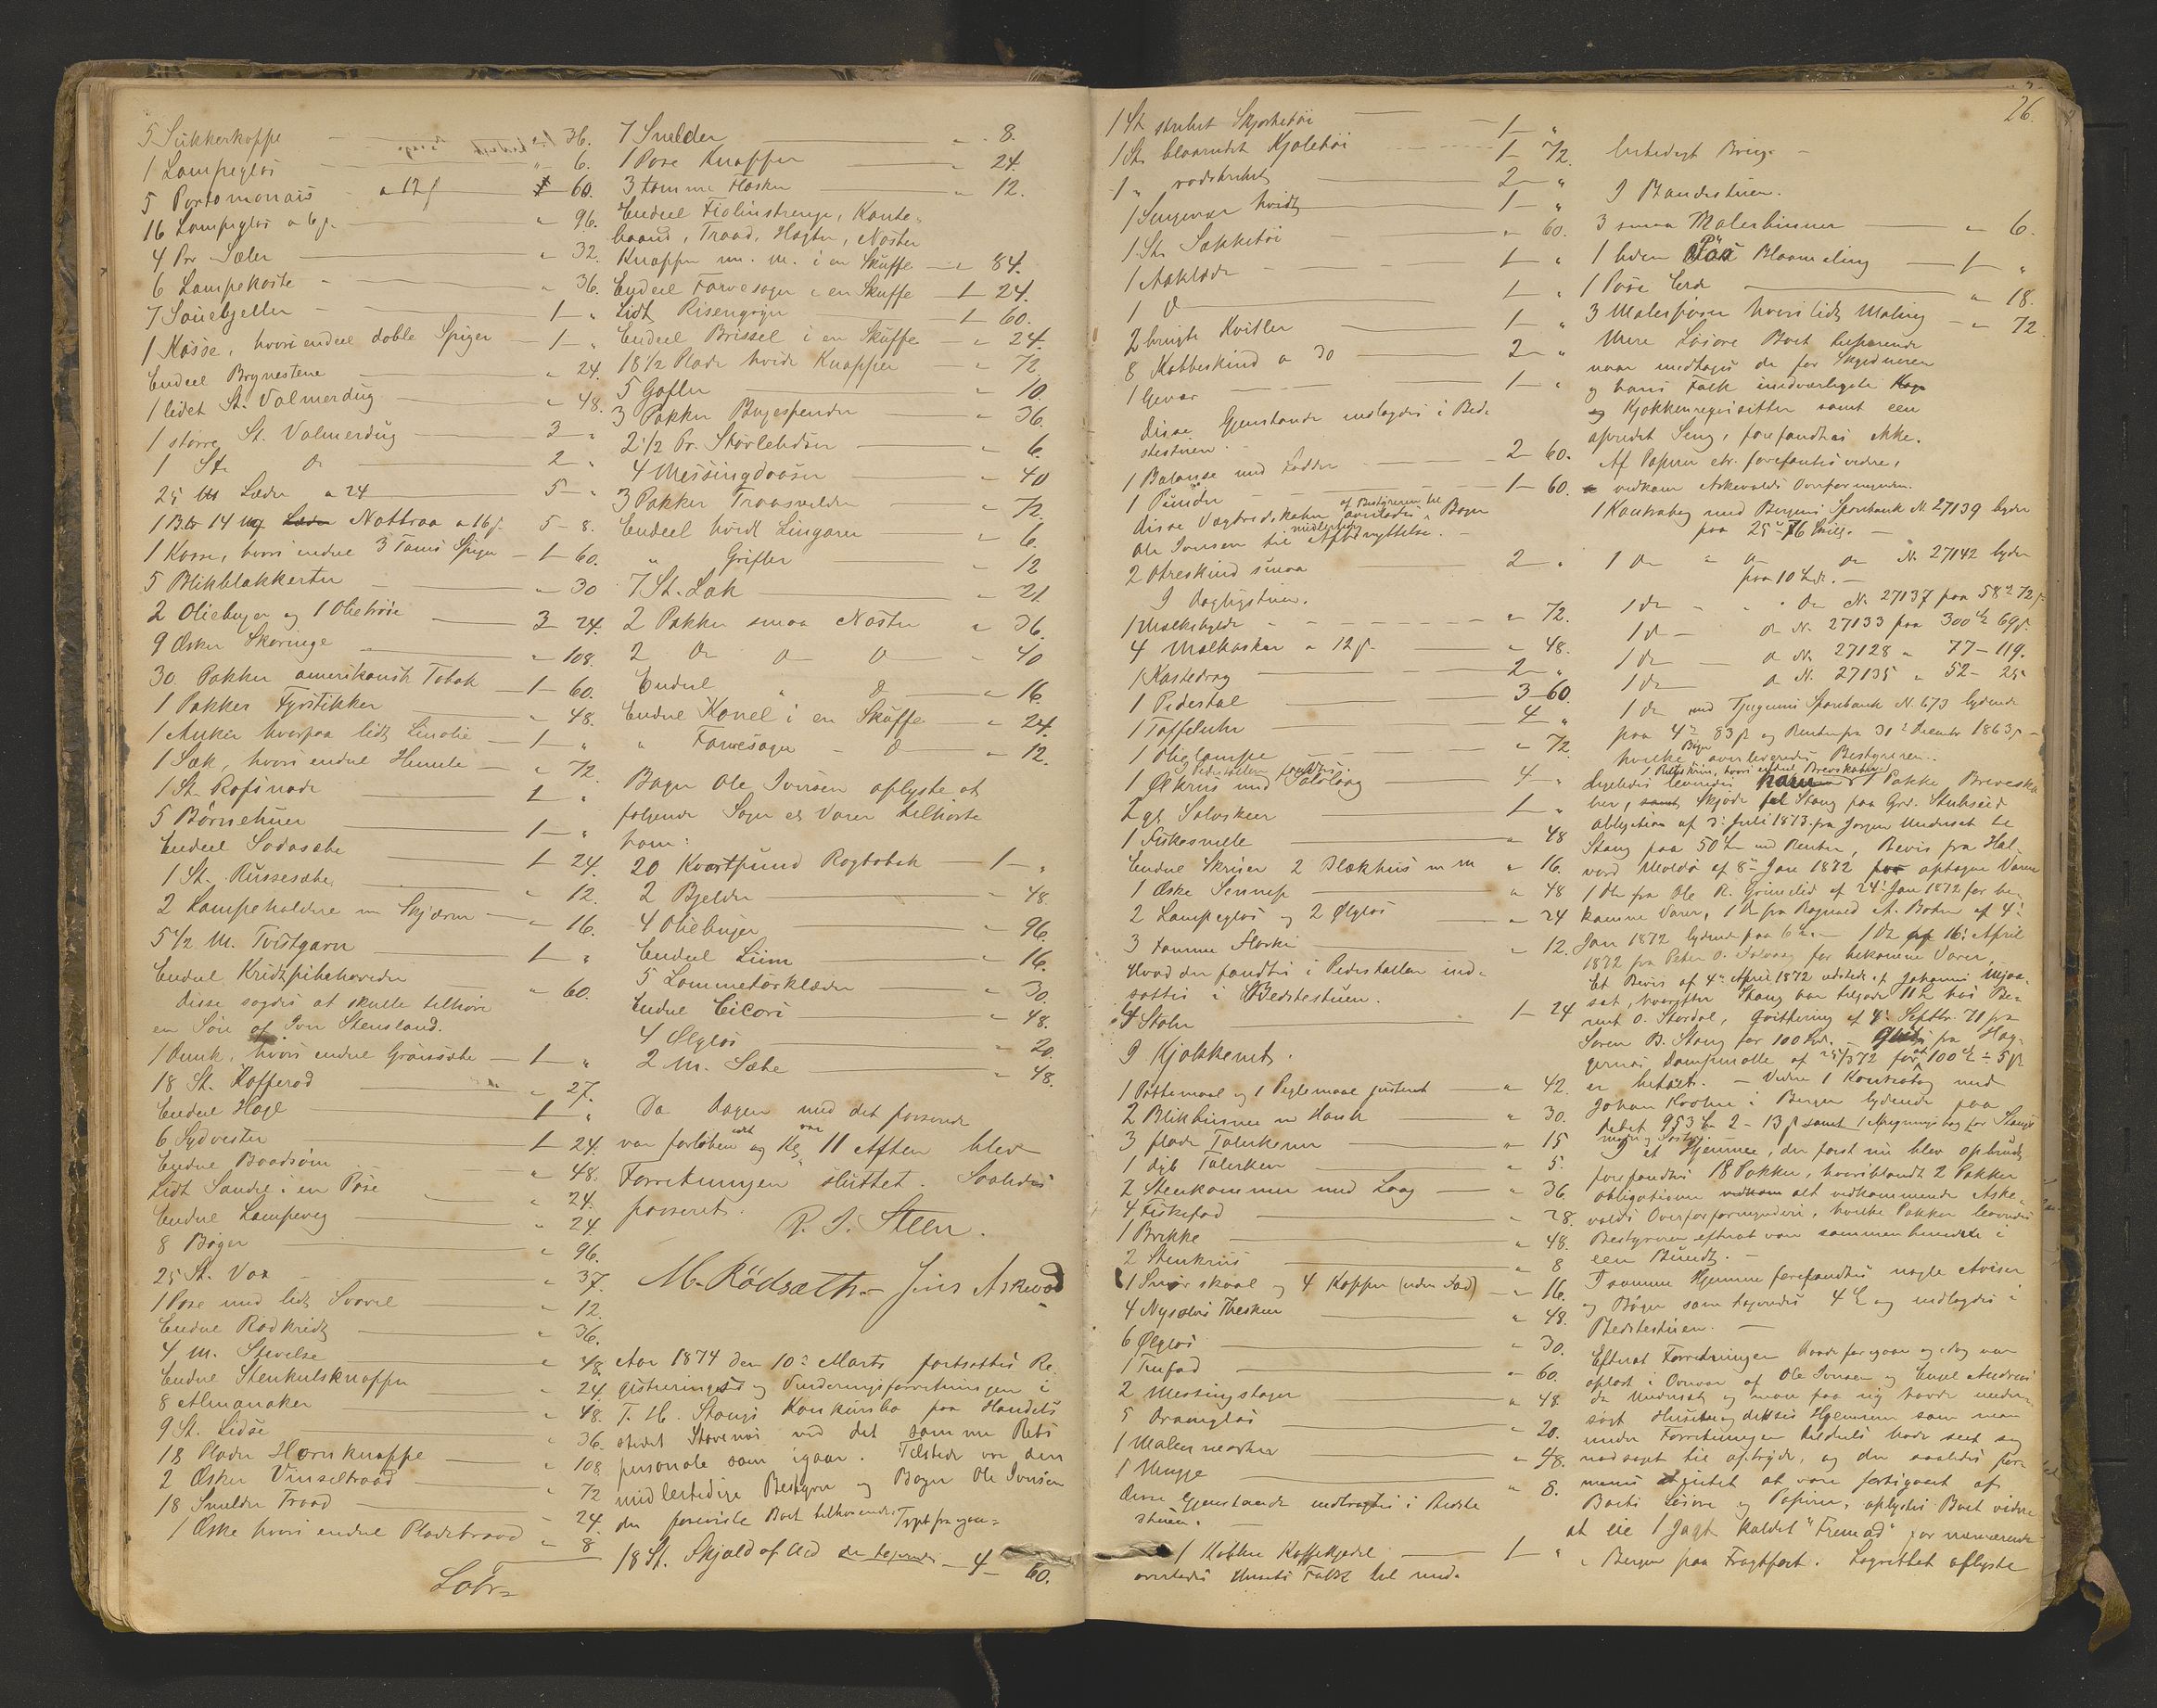 5 Sukkerkoppe — " 36.
1 Lampeglas — " 6.
5 Portomonais a 12 ß — 60.
16 Lampeglas a 6 ß. — " 96.
4 Par Sæler — " 32.
6 Lampekoste — " 36.
7 Sauebjeller — 1 – "
1 Kasse, hvori endeel doble Spiger — 1 – "
Endeel Brynestene — " 24.
1 lidet St. Valmerdug — " 48.
1 større St. Valmerdug — 3 – "
1 St. Do — 2 – "
25 Læder a 24 — 5 – "
1 14 Nottraa a 16 ß. 5 – 8.
1 Kasse, hvori endeel 3 Toms Spiger — 1 – 60.
5 Blikblakkerter — " 30
2 Oliebuxer og 1 Olietrøie — 3 – 24.
9 Æsker Skoringe — " 108.
30 Pakker amerikansk Tobak — 1 – 60.
1 Pakker Fyrstikker — " 48.
1 Anker hvorpaa lidt Linolie — 1 – "
1 Sæk, hvori endeel Humle — " 72.
1 St. Rafinade — 1 – "
5 Børnehuer — 1 – "
Endeel Sodasæbe — 1 – 24.
1 St. Russesæbe — " 12.
2 Lampeholdere m Skjærm — " 16.
5 1/2 M. Tvistgarn — 1 – "
Endeel Kridtpibehoveder — " 60.
disse sagdes at skulle tilhøre
en Søn af Iver Stensland.
1 Dunk, hvori endeel Grønsæbe — 1 – "
18 St. Kofferød — " 27.
Endeel Hagl — 1 – "
6 Sydvester — 1 – 24.
Endeel Baadsøm — " 48.
Lidt Sandel i en Pose — " 24.
Endeel Lampeveg — " 24.
8 Bøger — " 96.
25 St. Vox — " 37.
1 Pose med lidt Svovel — " 12.
Endeel Rødkridt — " 36.
4 M. Stivelse — " 48.
Endeel Stenkulsknapper — " 24
8 Almanaker — " 48.
9 St. Lidse — " 36.
18 Plader Hornknappe — " 108
2 Æsker Vinseltraad — " 72
18 Sneller Traad — " 24.
1 Æske hvori endeel Pladetraad — " 8
7 Snelder — " 8.
1 Pose Knapper — " 24.
3 tomme Flasker — " 12.
Endeel Fiolinstrenge, Kante-
baand, Traad, Hægter, Nøster
Knapper m. m. i en Skuffe — " 84.
Endeel Farvesager i en Skuffe — 1 – 24.
Lidt Risengryn — 1 – 60.
Endeel Brissel i en Skuffe — " 24.
18 1/2 Plade hvide Knapper — " 72
5 Gafler — " 10.
3 Pakker Buxespender — " 36.
2 1/2 Pr. Støvlebdser — " 6.
4 Messingdaaser — " 40
3 Pakker — " 72.
Endeel hvidt Lingarn — " 6.
" Grifler — " 12
7 St. Lak — " 21
2 Pakker smaa Nøster " 36.
2 Do Do Do — " 40
Endeel " Do — " 16.
Endeel Kanel i en Skuffe — " 24.
" Farvesager - Do — " 12.
Bager Ole Iversen oplyste at
følgende Sager el. Varer tilhørte
ham:
20 Kvartpund Rogtobak — 1 – "
2 Bjelder — " 48.
4 Oliebuxer — " 96.
Endeel Liim — " 16.
5 Lommetørklæder — " 30.
Endeel Cicori — " 48.
4 Ølglas — " 20.
2 M. Sæbe — " 48.
Da Dagen med det passerede
var forløben idet og Kl. var 11 Aften blev
Forretningen sluttet. Saaledes
passeret.
P. I. Steen.
M. Rödsæth. – Jens Askevod
Aar 1874 den 10de Marts fortsattes Re-
gistrerings og Vurderingsforretningen i
T. H. Stangs Konkursbo paa Handels
stedet Stavenæs ved det samme Rets
personale som igaar. Tilstede var den
midlertidige Bestyrer og Bager Ole Iversen
der foreviste Boet tilhørende
18 St. Skjold af Ced — 4 – 60.
26.
1 St. stribet Skjortetøi — 1 – "
1 St. blaarudet Kjoletøi — 1 – 72.
1 " rødstribet — 2 – "
1 Sengevar hvidt — 1 – "
1 St. Sækketøi — " 60.
1 Aaklæde — 1 – "
1 Do — 1 – "
2 brugte Kvitler — 1 – "
8 Kobbeskind a 30 — 2 – "
1 Gevær — 1 – "
disse Gjenstande indlagdes i Bed-
stestuen.
1 Balanse med Lodder — 2 – 60.
1 Pundar — 1 – 60.
disse Vægtredskaber overlodes af Bestyreren til Bager
Ole Iversen til midlertidig Afbenyttelse.
2 Otreskind smaa — 2 – "
I Dagligstuen.
1 Melkehylde — " 72.
4 Melkøsker a 12 ß. — " 48.
1 Kastedrag — 2 – "
1 Pedestal — 3 – 60.
1 Taffeluhr — 4 – "
1 Oliglampe — " 72
I Pedestalen fandtes:
1 Ølkrus med Sølvlaag — 4 – "
2 gl. Sølvskeer — 1 – "
1 Fiskesnelle — " 48
Endeel Skruer 2 Blækhus m m " 16.
1 Æske Sennep — " 48
2 Lampeglas og 2 Ølglas — " 24
3 tomme Flasker — " 12.
Hvad der fandtes i Pedestallen ind-
sattes i Bedstestuen.
4 Stole — 1 – 24
I Kjøkkenet.
1 Pottemaal og 1 Peglemaal justeret — " 42.
2 Blikhuner m Hank — " 30.
3 flade Talerkener — " 15
1 dyb Talerken — " 5.
2 Stenkommer med Laag — " 36.
4 Fiskefad — " 28.
1 Brikke — " 48.
2 Stenkrus — " 8
1 Smørskaal og 4 Kopper (uden Fad) — " 16.
4 Nysølvs Theskeer — " 48.
6 Ølglas — " 30.
1 Trefad — " 60.
2 Messingstager — " 48
5 Dramglas — " 20.
1 Malermorter — " 48.
1 Mugge — " 8.
disse Gjenstande indbragtes i Bedste
stuen.
1 Kobber Kaffekjedel — 1 – "
overlodes Husets Folk til mid-
lertidigt Brug. –
I Bandestuen.
3 smaa Malerbunner — " 6.
1 liden Pös Blaameling — 1 – "
1 Pose Erder — " 18.
3 Malerposer hvori lidt Maling — " 72.
Mere Løsøre Boet tilhørende
naar undtages de for Skyldneren
og hans Folk
og Kjøkkenrequisitter samt een
opredet Seng, forefandtes ikke.
Af Papirer etc. forefantes vedre,
vedkom. Askevolds Overformynderi.
1 Kontrabog med Bergens Sparebank N. 27139 lyden
paa 25 – 76 Skilg. –
1 Do " Do Do N. 27142 lyden
paa 10 Spd. –
1 Do - " Do N. 27137 paa 58 72 ß
1 Do – Do N. 27133 paa 300 69 ß.
1 Do – Do N. 27128 " 77 – 119.
1 Do Do N. 27135 " 52 – 25
1 Do med Sparebank N. 673 lydende
paa 4 83 ß og Renter fra 31 December 1863 –
hvilke Bøger overleveredes Bestyreren.
Ligeledes leveredes 1 Pakke Breveska-
ber, Skjøde til Stang paa Grd. Stubseid
Obligation af 3. Juli 1873 fra Jørgen Underset til
Stang paa 50 med Renter, Bevis fra Hal-
vord Moldø af 8 Jan 1872 for optagne Varer
1 Do fra Ole R. Grimelid af 24. Jan 1872 for be-
komne Varer, 1 Do fra Rognald A. Boten af 4.
Jan 1872 lydende paa 6 – 1 Do af 16. April
1872 fra Peter O. Solvaag for bekomne Varer,
Et Bevis af 4. April 1872 udstedt af Johannes
hvorefter Stang har tilgode 11 hos Be-
rent O. Stordal, Qvittering af 4. Septbr. 71 fra
Søren B. Stang for 100 Spd. – fra Hag-
gernæs Dampmølle af 25/5 72 for at 100 ÷ 5 ß
er betalt. – Videre 1 Kontrabog med
Johan Krohn i Bergen lydende paa
debet 953 2 – 13 ß samt 1
I et Gjemme, der først nu blev opbrudt
forefandtes 18 Pakker, hvoriblandt 2 Pakker
Obligationer alt vedkommende Aske-
volds Overformynderi, hvilke Pakker leveredes
Bestyreren efterat være sammenbundne i
een Bundt. –
I samme Gjemme forefandtes nogle Aviser
og Bøger som taxeredes 4 og indlagdes i
Bedstestuen. –
Efterat Forretningen baade igaar og idag var
oplæst i Overvær af Ole Iversen og Engel Andrea
da Underset og man paa ny havde under-
søgt Huset og dettes Gjemmer som man
under Forretningen havde seet sig
nødsaget til opbryde, og der saaledes for-
menes at være færtiggaaet af
Boets Løsøre og Papirer, oplystes Boet videre
at eie 1 Jagt kaldet "Fremad" for nærværende
i Bergen paa Fragtfart. Lagrettet oplyste